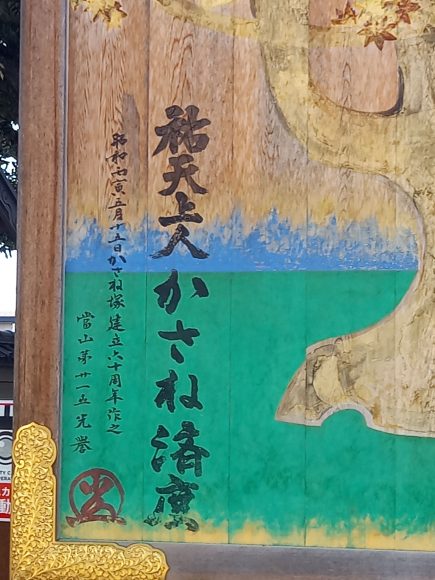 祐天上人かさね済度
昭和丙寅五月十五日かさね塚建立六十周年作之
當山第廿一世光誉